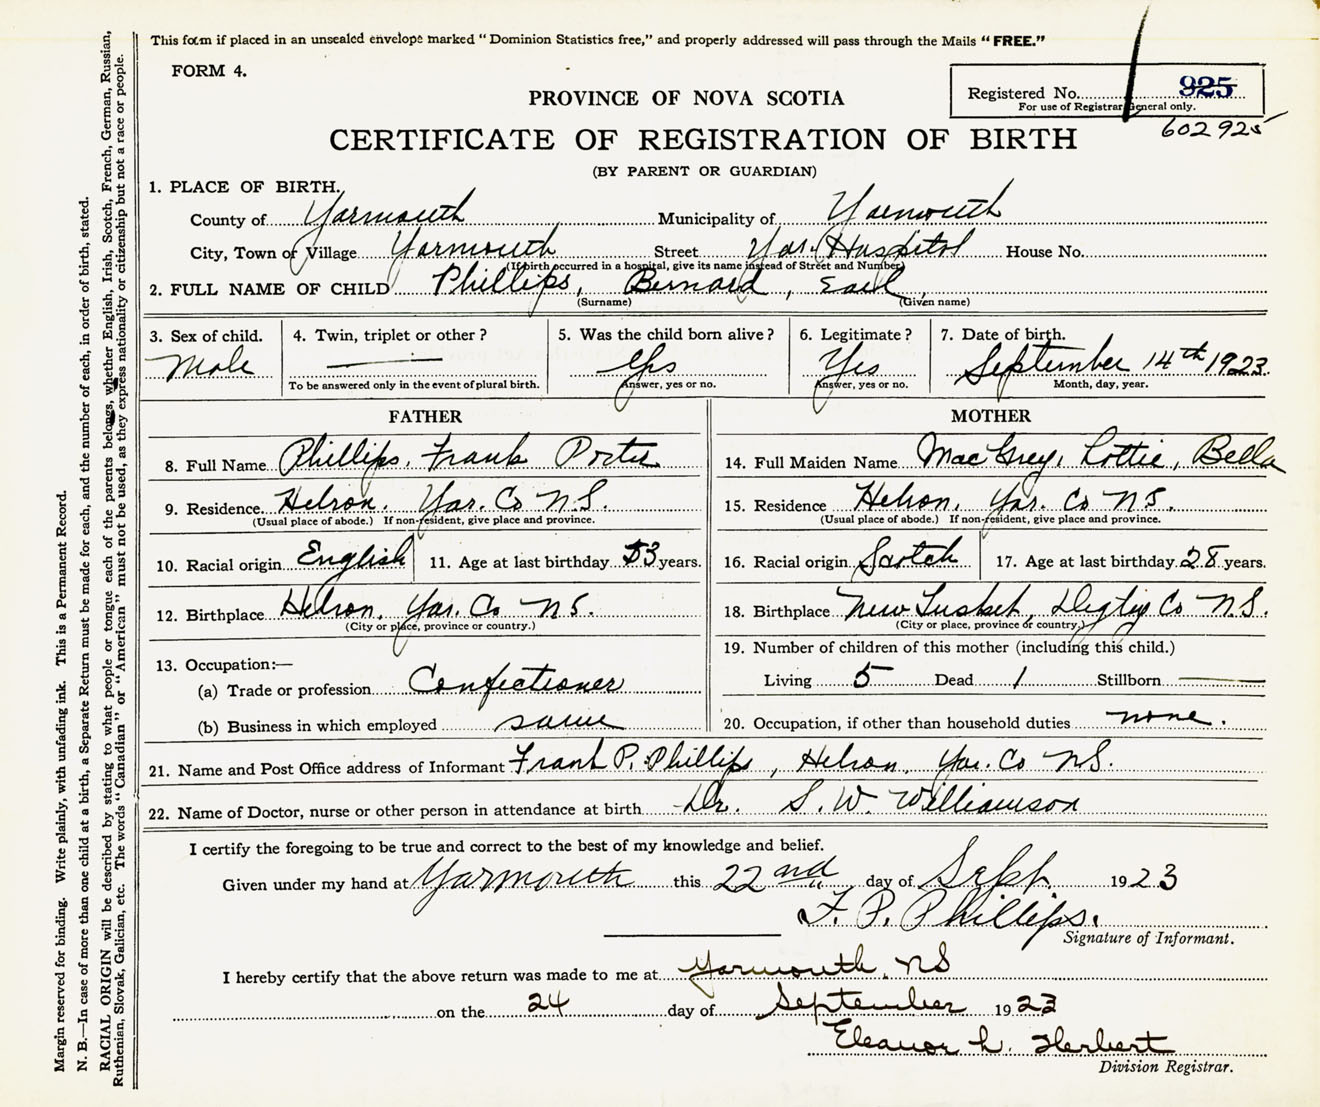 This form if placed in an unsealed envelope marked "Dominion Statistics free," and properly addressed will pass through the Mails "FREE."
FORM 4.
Registered No. 925
For use of Registrar General only.
602925
PROVINCE OF NOVA SCOTIA
CERTIFICATE OF REGISTRATION OF BIRTH
(BY PARENT OR GUARDIAN)
1. PLACE OF BIRTH.
County of Yarmouth Municipality of Yarmouth
City, Town or Village Yarmouth Street Yar. Hospital House No.
(If birth occurred in a hospital, give its name instead of Street and Number)
2. FULL NAME OF CHILD Phillips, Bernard, Earl
(Surname) (Given name)
3. Sex of child. 4. Twin, triplet or other? 5. Was the child born alive? 6. Legitimate? 7. Date of birth.
Male — Yes Yes September 14th 1923.
To be answered only in the event of plural birth. Answer, yes or no. Answer, yes or no. Month, day, year.
FATHER
8. Full Name Phillips, Frank Porter
9. Residence. Hebron, Yar. Co N.S.
(Usual place of abode.) If non-resident, give place and province.
10. Racial origin English 11. Age at last birthday 33 years.
12. Birthplace Hebron, Yar. Co NS.
(City or place, province or country.)
13. Occupation:—
(a) Trade or profession Confectioner
(b) Business in which employed same
MOTHER
14. Full Maiden Name MacGrey, Lottie, Bella
15. Residence Hebron, Yar. Co NS.
(Usual place of abode.) If non-resident, give place and province.
16. Racial origin Scotch 17. Age at last birthday 28 years.
18. Birthplace New Tusket, Digby Co N.S.
(City or place, province or country.)
19. Number of children of this mother (including this child.)
Living 5 Dead 1 Stillborn —
20. Occupation, if other than household duties none.
21. Name and Post Office address of Informant Frank P. Phillips, Hebron, Yar. Co NS.
22. Name of Doctor, nurse or other person in attendance at birth Dr. S. W. Williamson
I certify the foregoing to be true and correct to the best of my knowledge and belief.
Given under my hand at Yarmouth this 22nd day of Sept 1923
F. P. Phillips.
Signature of Informant.
I hereby certify that the above return was made to me at Yarmouth, NS
on the 24 day of September 1923
Eleanor L. Herbert
Division Registrar.
Margin reserved for binding. Write plainly, with unfading ink. This is a Permanent Record.
N. B.—In case of more than one child at a birth, a Separate Return must be made for each, and the number of each, in order of birth, stated.
RACIAL ORIGIN will be described by stating to what people or tongue each of the parents belongs, whether English, Irish, Scotch, French, German, Russian,
Ruthenian, Slovak, Galician, etc. The words "Canadian" or "American" must not be used, as they express nationality or citizenship but not a race or people.